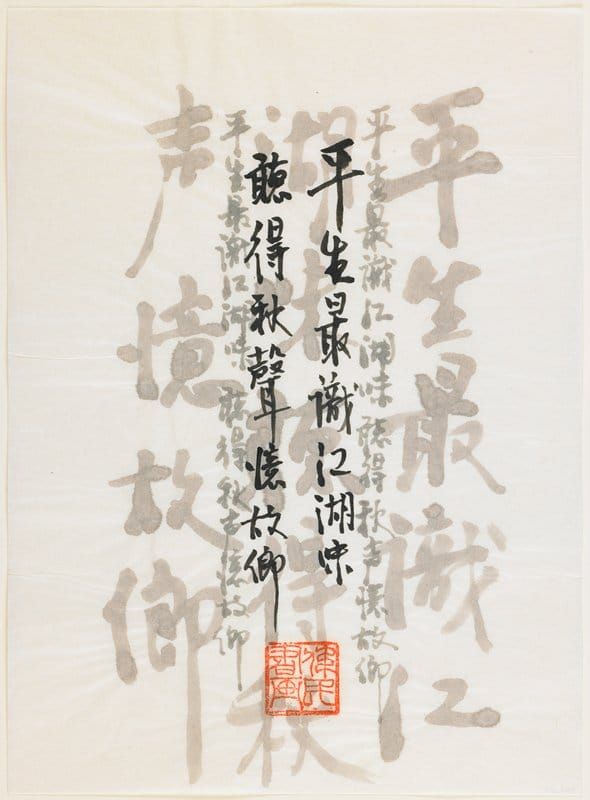 平生最識江
湖味聽得秋
声憶故鄉
平生最識江湖味聽得秋声憶故鄉
平生最識江湖味
聽得秋聲憶故鄉
平生最識江湖味聽得秋声憶故鄉